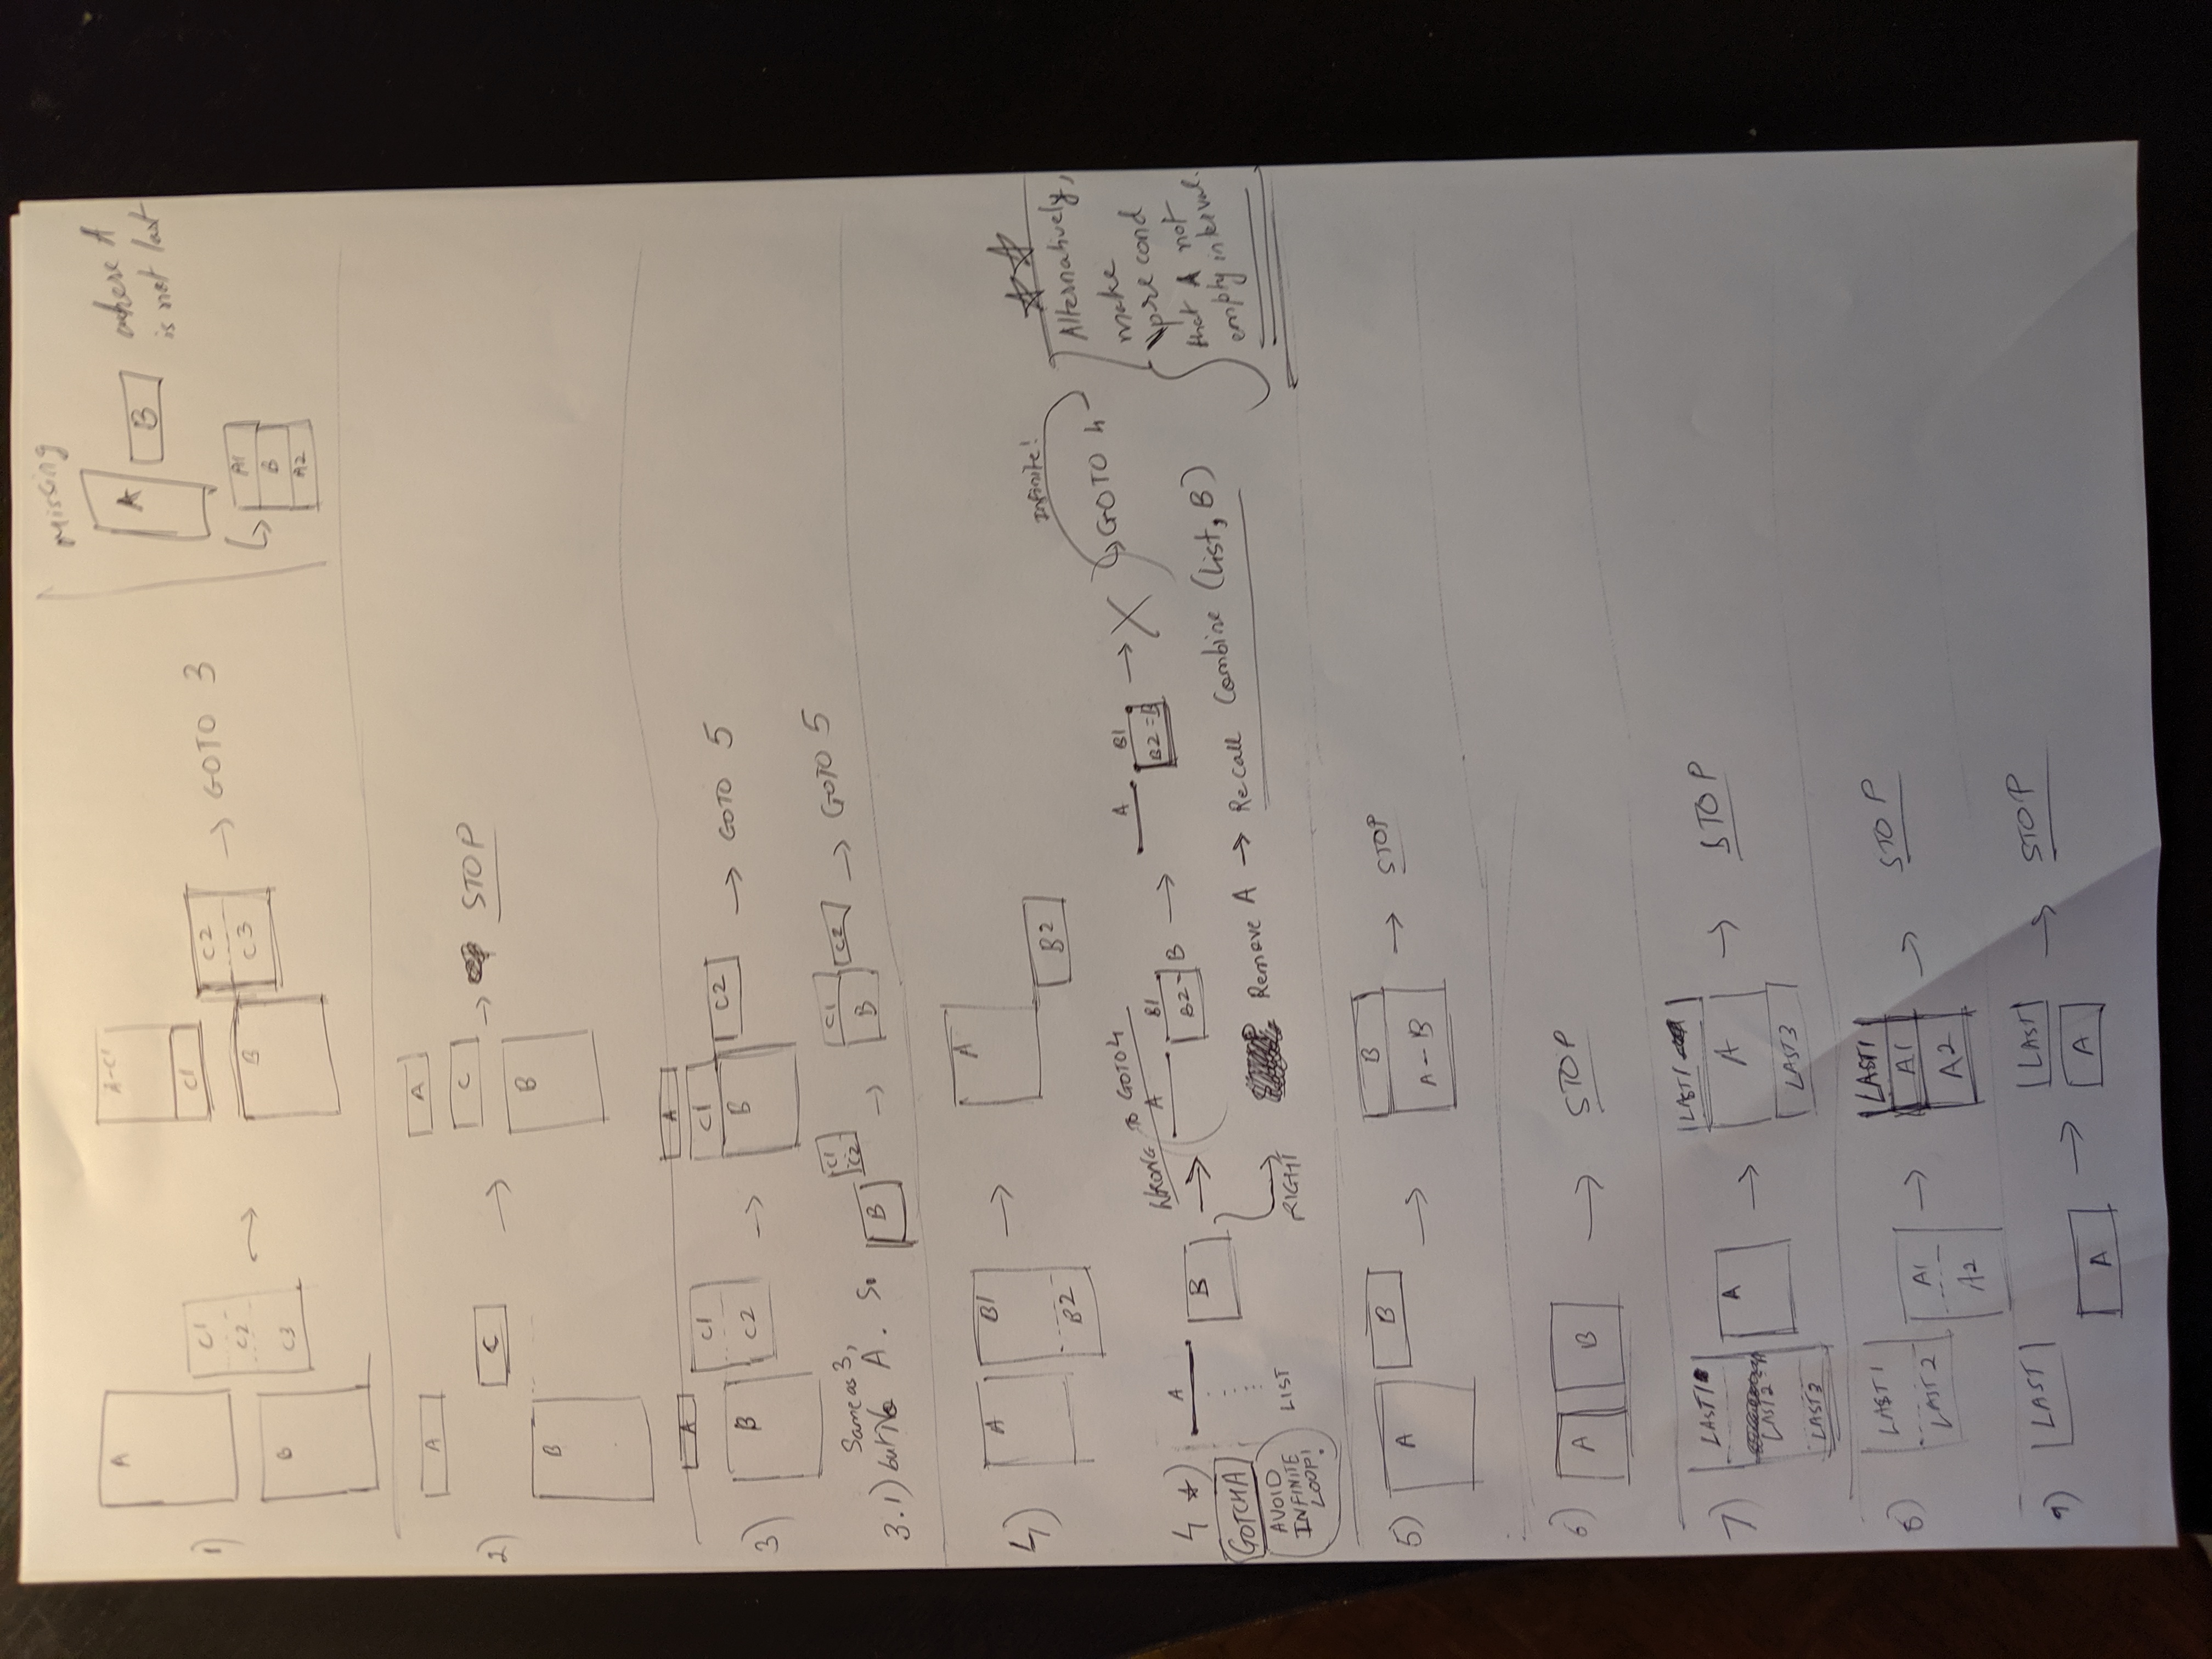 Missing
A
B
where A
is not last
A1
B
A2
1)
A
B
C1
C2
C3
A-C1
C1
B
C2
C3
→ GOTO 3
2)
A
C
B
→
A
C
B
→ STOP
3)
A
B
C1
C2
→
A
C1
B
C2
→ GOTO 5
Same as 3,
3.1) but No A. So
B
C1
C2
→
C1
B
C2
→ GOTO 5
4)
A
B1
B2
→
A
B2
4 ☆)
GOTCHA
AVOID
INFINITE
LOOP!
A
LIST
B
WRONG TO GOTO 4
A
B1
B2 = B
→
A
B1
B2 = B
→ X
GOTO 4
Infinite!
RIGHT
Remove A → Recall Combine (List, B)
☆☆
Alternatively,
make
pre cond
that A not
empty interval.
5)
A
B
→
B
A - B
→ STOP
6)
A
B
→ STOP
7)
LAST1
LAST2
LAST3
A
→
LAST1
A
LAST3
→ STOP
8)
LAST1
LAST2
A1
A2
→
LAST1
A1
A2
→ STOP
9)
LAST
A
→
LAST
A
→ STOP